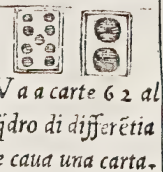 V a a carte 6 2 al
q̃dro di differẽtia
e caua una carta.